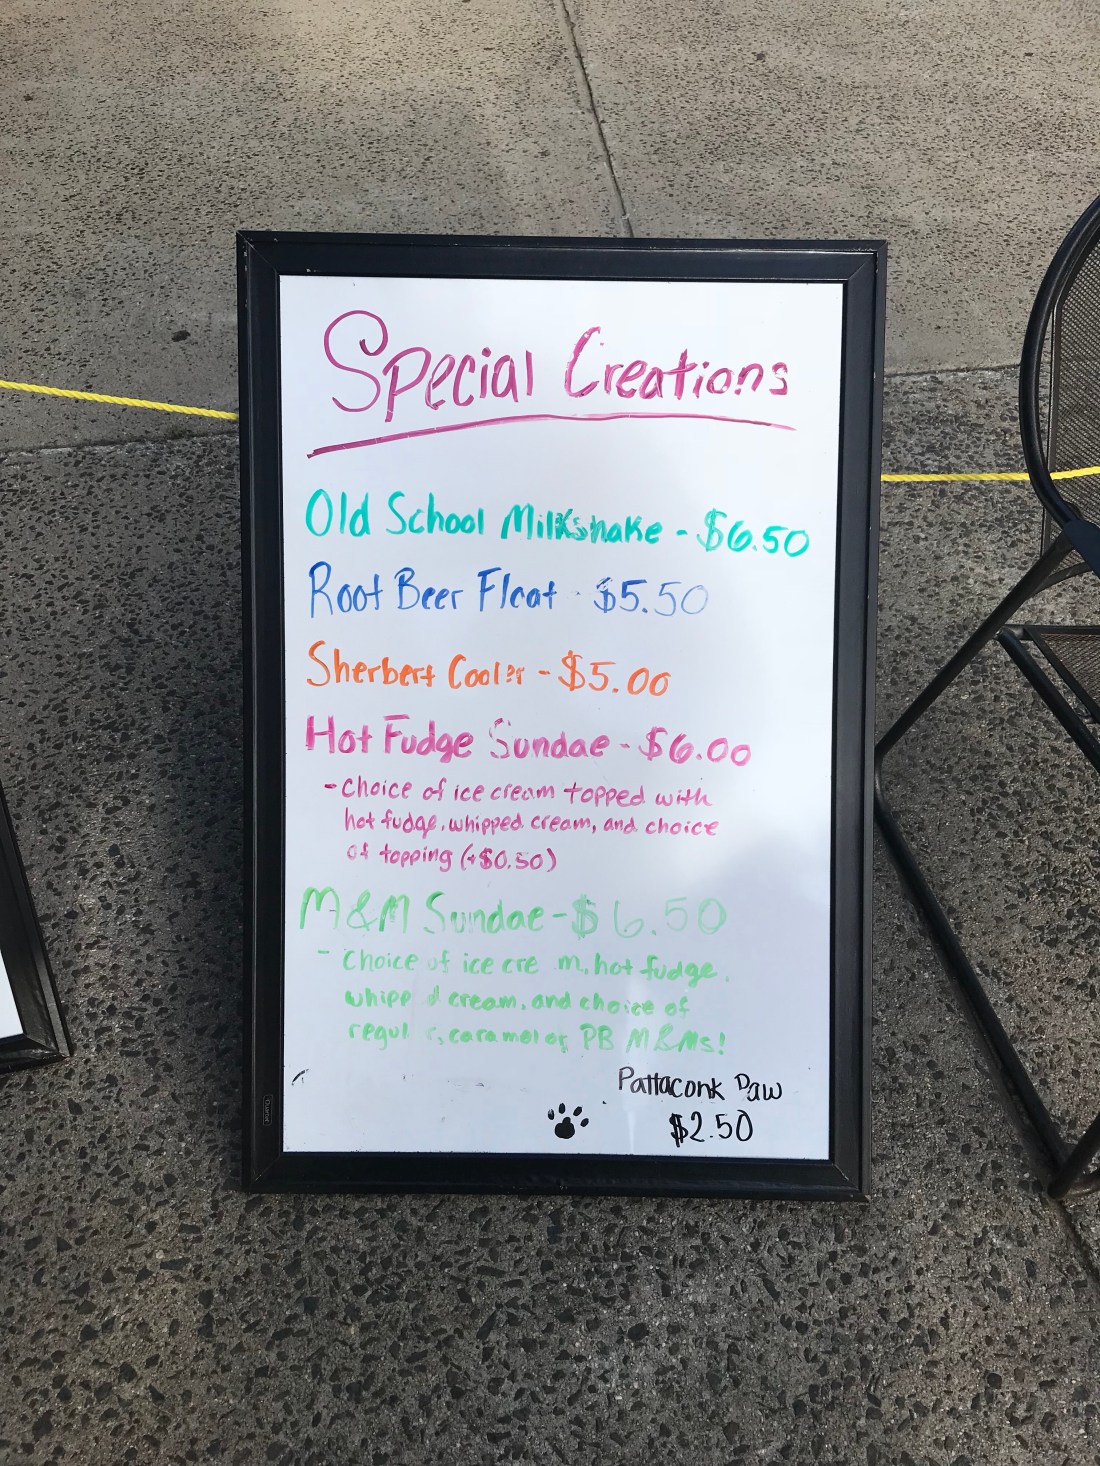 Special Creations
Old School Milkshake - $6.50
Root Beer Float $5.50
Sherbert Cooler - $5.00
Hot Fudge Sundae - $6.00
- Choice of ice cream topped with
hot fudge, whipped cream, and choice
of topping (+$0.50)
M&M Sundae - $6.50
- Choice of ice cream, hot fudge,
whipped cream, and choice of
regular, caramel or PB M&Ms!
Pattaconk Paw
$2.50